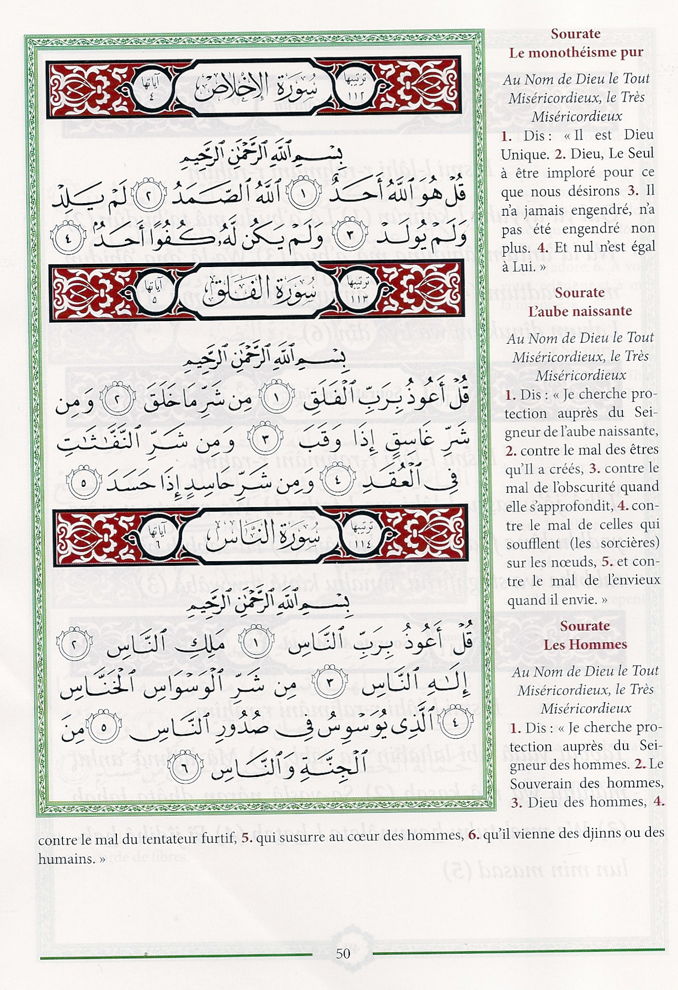 ترتيبها ١١٢ سُورَةُ الإِخْلَاصِ آياتها ٤
بِسْمِ ٱللَّهِ ٱلرَّحْمَٰنِ ٱلرَّحِيمِ
قُلْ هُوَ ٱللَّهُ أَحَدٌ ١ ٱللَّهُ ٱلصَّمَدُ ٢ لَمْ يَلِدْ
وَلَمْ يُولَدْ ٣ وَلَمْ يَكُن لَّهُۥ كُفُوًا أَحَدٌۢ ٤
ترتيبها ١١٣ سُورَةُ الْفَلَقِ آياتها ٥
بِسْمِ ٱللَّهِ ٱلرَّحْمَٰنِ ٱلرَّحِيمِ
قُلْ أَعُوذُ بِرَبِّ ٱلْفَلَقِ ١ مِن شَرِّ مَا خَلَقَ ٢ وَمِن
شَرِّ غَاسِقٍ إِذَا وَقَبَ ٣ وَمِن شَرِّ ٱلنَّفَّٰثَٰتِ
فِى ٱلْعُقَدِ ٤ وَمِن شَرِّ حَاسِدٍ إِذَا حَسَدَ ٥
ترتيبها ١١٤ سُورَةُ النَّاسِ آياتها ٦
بِسْمِ ٱللَّهِ ٱلرَّحْمَٰنِ ٱلرَّحِيمِ
قُلْ أَعُوذُ بِرَبِّ ٱلنَّاسِ ١ مَلِكِ ٱلنَّاسِ ٢
إِلَٰهِ ٱلنَّاسِ ٣ مِن شَرِّ ٱلْوَسْوَاسِ ٱلْخَنَّاسِ
٤ ٱلَّذِى يُوَسْوِسُ فِى صُدُورِ ٱلنَّاسِ ٥ مِنَ
ٱلْجِنَّةِ وَٱلنَّاسِ ٦
Sourate
Le monothéisme pur
Au Nom de Dieu le Tout
Miséricordieux, le Très
Miséricordieux
1. Dis : « Il est Dieu
Unique. 2. Dieu, Le Seul
à être imploré pour ce
que nous désirons 3. Il
n'a jamais engendré, n'a
pas été engendré non
plus. 4. Et nul n'est égal
à Lui. »
Sourate
L'aube naissante
Au Nom de Dieu le Tout
Miséricordieux, le Très
Miséricordieux
1. Dis : « Je cherche pro-
tection auprès du Sei-
gneur de l'aube naissante,
2. contre le mal des êtres
qu'Il a créés, 3. contre le
mal de l'obscurité quand
elle s'approfondit, 4. con-
tre le mal de celles qui
soufflent (les sorcières)
sur les nœuds, 5. et con-
tre le mal de l'envieux
quand il envie. »
Sourate
Les Hommes
Au Nom de Dieu le Tout
Miséricordieux, le Très
Miséricordieux
1. Dis : « Je cherche pro-
tection auprès du Sei-
gneur des hommes. 2. Le
Souverain des hommes,
3. Dieu des hommes, 4.
contre le mal du tentateur furtif, 5. qui susurre au cœur des hommes, 6. qu'il vienne des djinns ou des
humains. »
50